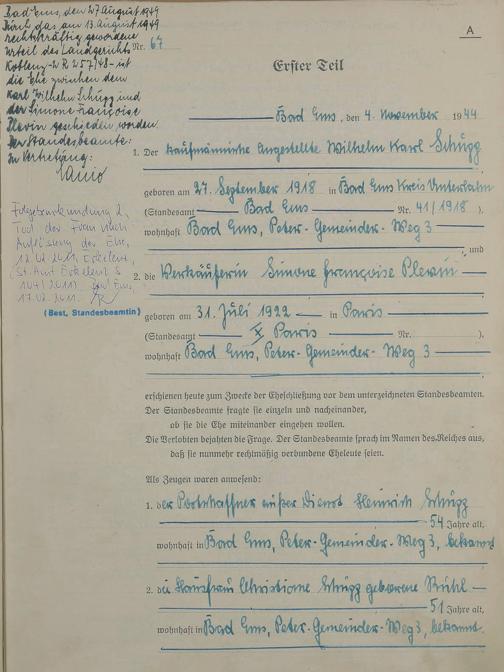 Bad Ems, den 27. August 1949
Durch das am 13. August 1949
rechtskräftig gewordene
Urteil des Landgerichts
Koblenz - 2 R 257/48 - ist
die Ehe zwischen dem
Karl Wilhelm Schügg und
der Simone Françoise
Plevin geschieden worden.
Der Standesbeamte:
In Vertretung:
Folgebeurkundung 2,
Tod der Frau nach
Auflösung der Ehe,
Erkelenz,
St. Amt Erkelenz
104/2011
Bad Ems,
17.02.2011.
(Best, Standesbeamtin)
A
Nr. 67
Erster Teil
Bad Ems, den 4. November 1944
1. Der kaufmännische Angestellte Wilhelm Karl Schügg
geboren am 27. September 1918 in Bad Ems Kreis Unterlahn
(Standesamt Bad Ems Nr. 41/1918).
wohnhaft Bad Ems, Peter-Gemeinder-Weg 3
und
2. die Verkäuferin Simone Françoise Plevin
geboren am 31. Juli 1922 in Paris
(Standesamt X Paris Nr. ).
wohnhaft Bad Ems, Peter-Gemeinder-Weg 3
erschienen heute zum Zwecke der Eheschließung vor dem unterzeichneten Standesbeamten.
Der Standesbeamte fragte sie einzeln und nacheinander,
ob sie die Ehe miteinander eingehen wollen.
Die Verlobten bejahten die Frage. Der Standesbeamte sprach im Namen des Reiches aus,
daß sie nunmehr rechtmäßig verbundene Eheleute seien.
Als Zeugen waren anwesend:
1. der Postschaffner außer Dienst Heinrich Schügg
54 Jahre alt,
wohnhaft in Bad Ems, Peter-Gemeinder-Weg 3, bekannt
2. die Hausfrau Christiane Schügg geborene Rühl
51 Jahre alt,
wohnhaft in Bad Ems, Peter-Gemeinder-Weg 3, bekannt